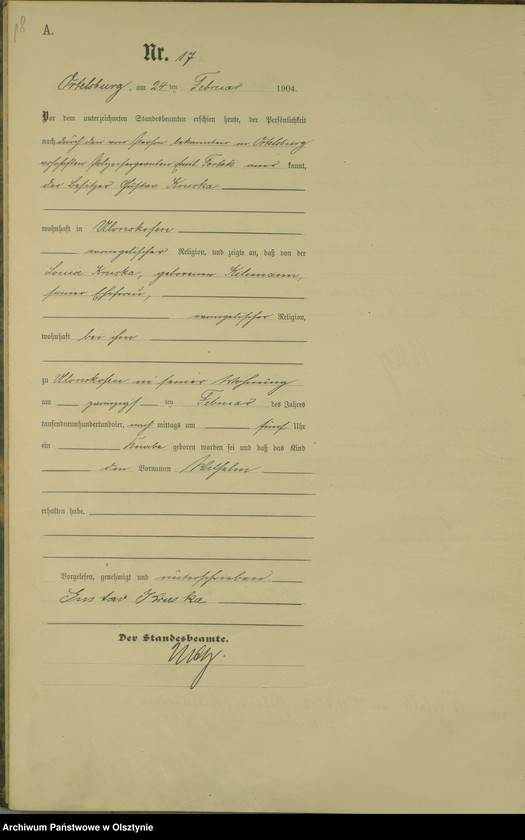 A.
Nr. 17
Ortelsburg, am 24 ten Februar 1904.
Vor dem unterzeichneten Standesbeamten erschien heute, der Persönlichkeit
nach durch den von Person bekannten in Ortelsburg
Polizeisergeanten Emil kannt,
der Besitzer Gustav Kruska
wohnhaft in Ulonskofen
evangelischer Religion, und zeigte an, daß von der
Kruska, geborenen
seiner Ehefrau,
evangelischer Religion,
wohnhaft bei ihm
zu Ulonskofen in seiner Wohnung
am zwanzigsten Februar des Jahres
tausendneunhundertundvier, nach mittags um fünf Uhr
ein Knabe geboren worden sei und daß das Kind
den Vornamen Wilhelm
erhalten habe.
Vorgelesen, genehmigt und unterschrieben
Gustav Kruska
Der Standesbeamte.
Archiwum Państwowe w Olsztynie